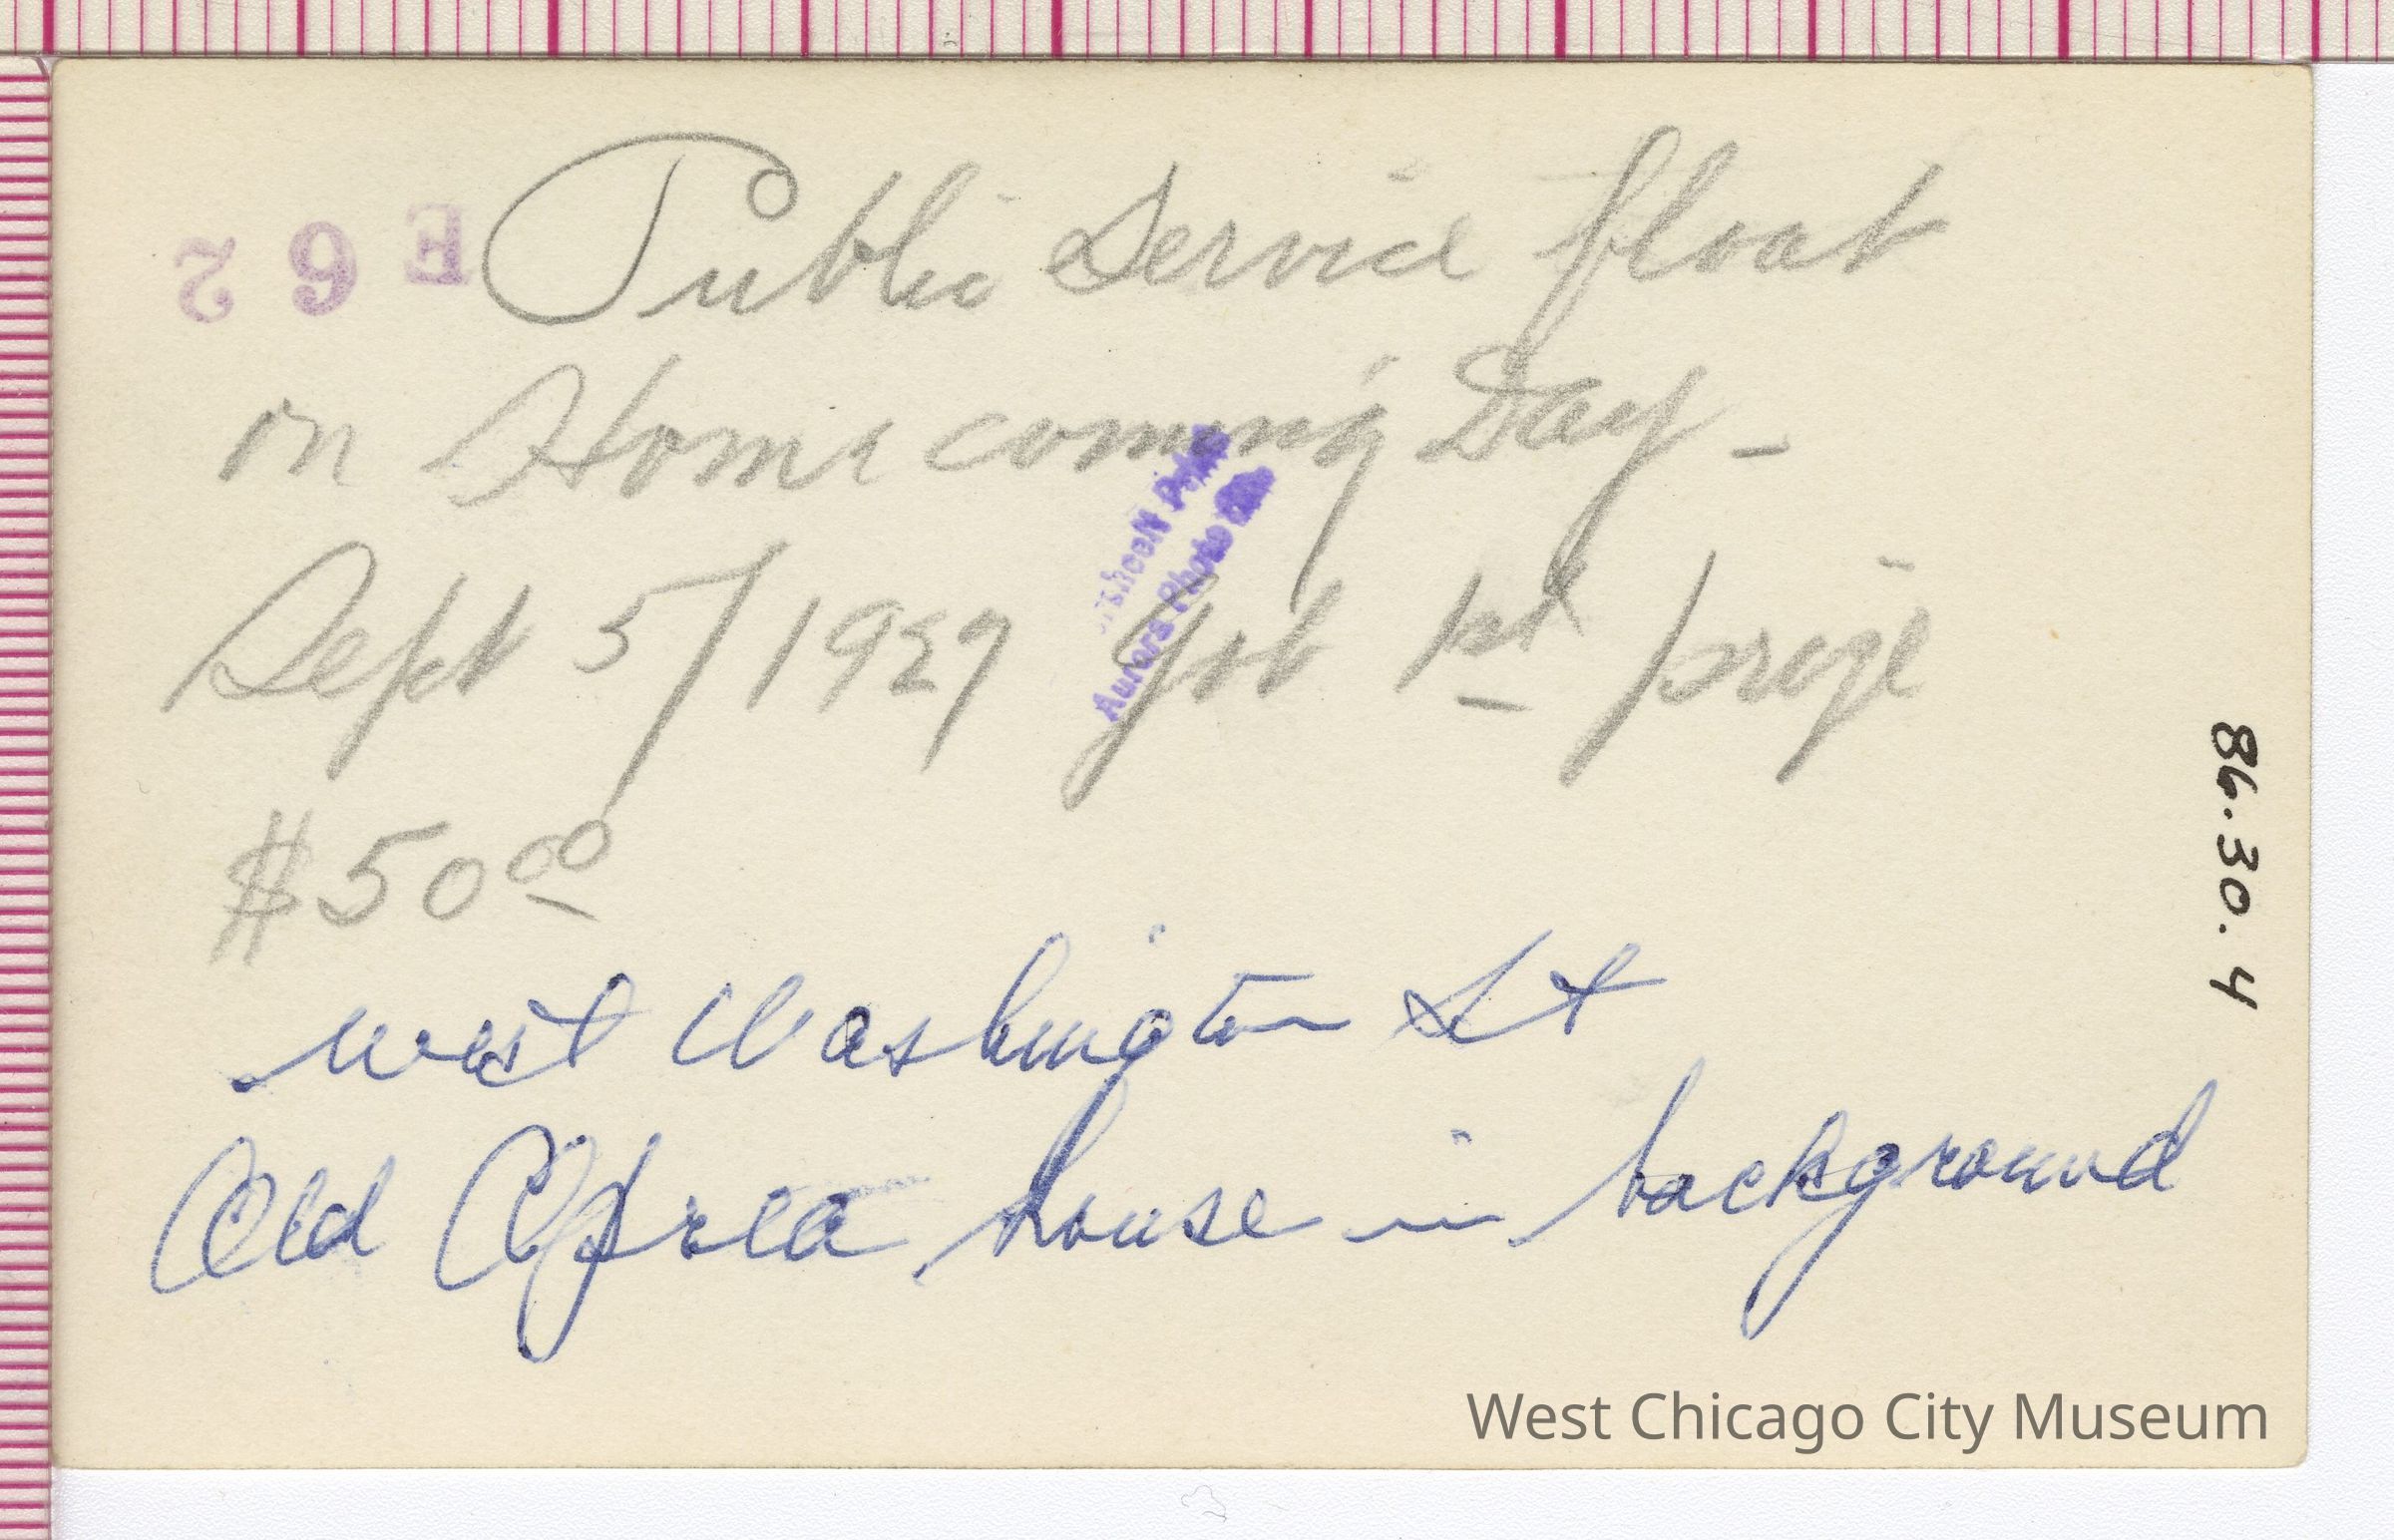 Public Service float
on Home coming Day -
Sept 5/1927 Got 1st prize
$50 00
Aurora Photo
west Washington St
Old Oprea house in background
86.30.4
West Chicago City Museum